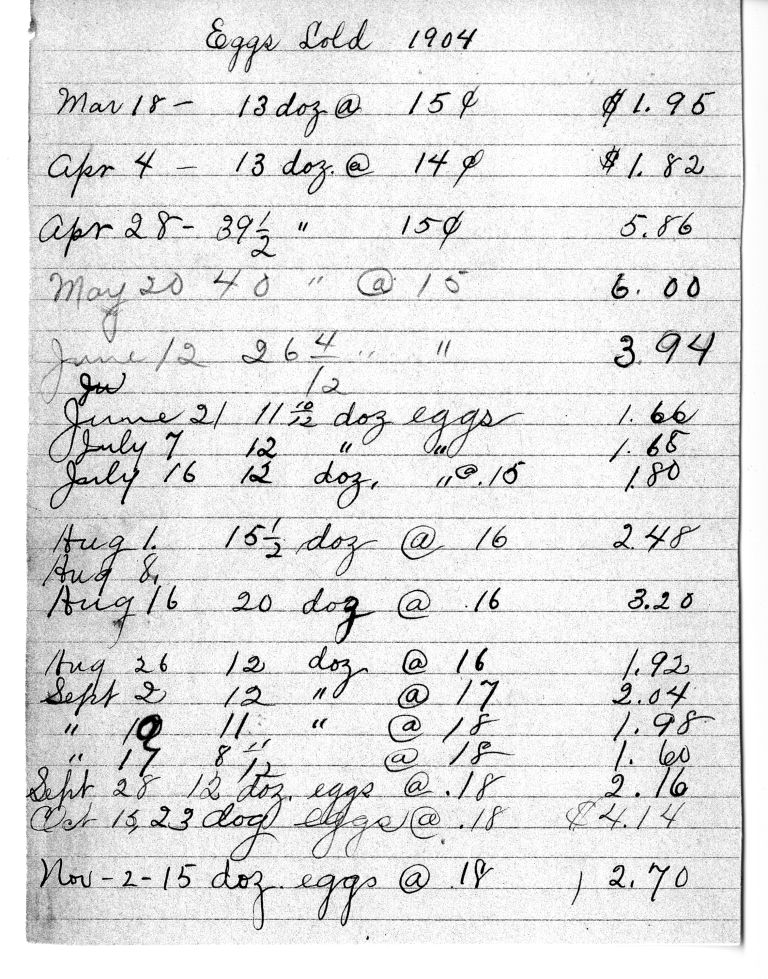 Eggs Sold 1904
Mar 18 - 13 doz @ 15¢ $1.95
Apr 4 - 13 doz. @ 14¢ $1.82
Apr 28 - 39 1/2 " 15¢ 5.86
May 20 40 " @ 15 6.00
June 12 26 4/12 " " 3.94
Ju
June 21 11 10/12 doz eggs 1.66
July 7 12 " " 1.65
July 16 12 doz, " @ .15 1.80
Aug 1. 15 1/2 doz @ 16 2.48
Aug 8.
Aug 16 20 doz @ .16 3.20
Aug 26 12 doz @ 16 1.92
Sept 2 12 " @ 17 2.04
" 11 " @ 18 1.98
" 17 8 11/12 @ 18 1.60
Sept 28 12 doz. eggs @ .18 2.16
Oct 15, 23 doz eggs @ .18 $4.14
Nov - 2 - 15 doz. eggs @ .18 2.70